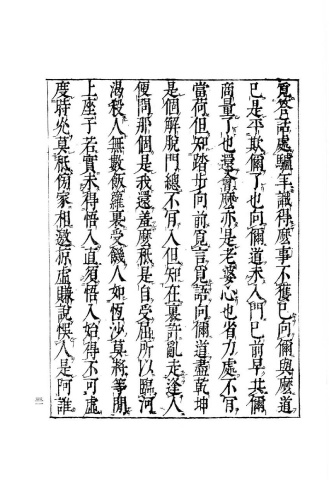 覓答話處驢年識得麽事不獲已向儞與麽道
已是平欺儞了也向儞道未入門已前早共儞
商量了也還會麽亦是老婆心也省力處不肯
當荷但知踏步向前覓言覓語向儞道盡乾坤
是個解脫門總不肯入但知在裏許亂走逢人
便問那個是我還羞麽秖是自受屈所以臨河
渴殺人無數飯籮裏受餓人如恆沙莫將等閒
上座子若實未得悟入直須悟入始得不可虛
度時光莫秖傍家相邀掠虛賺說悞人是阿誰